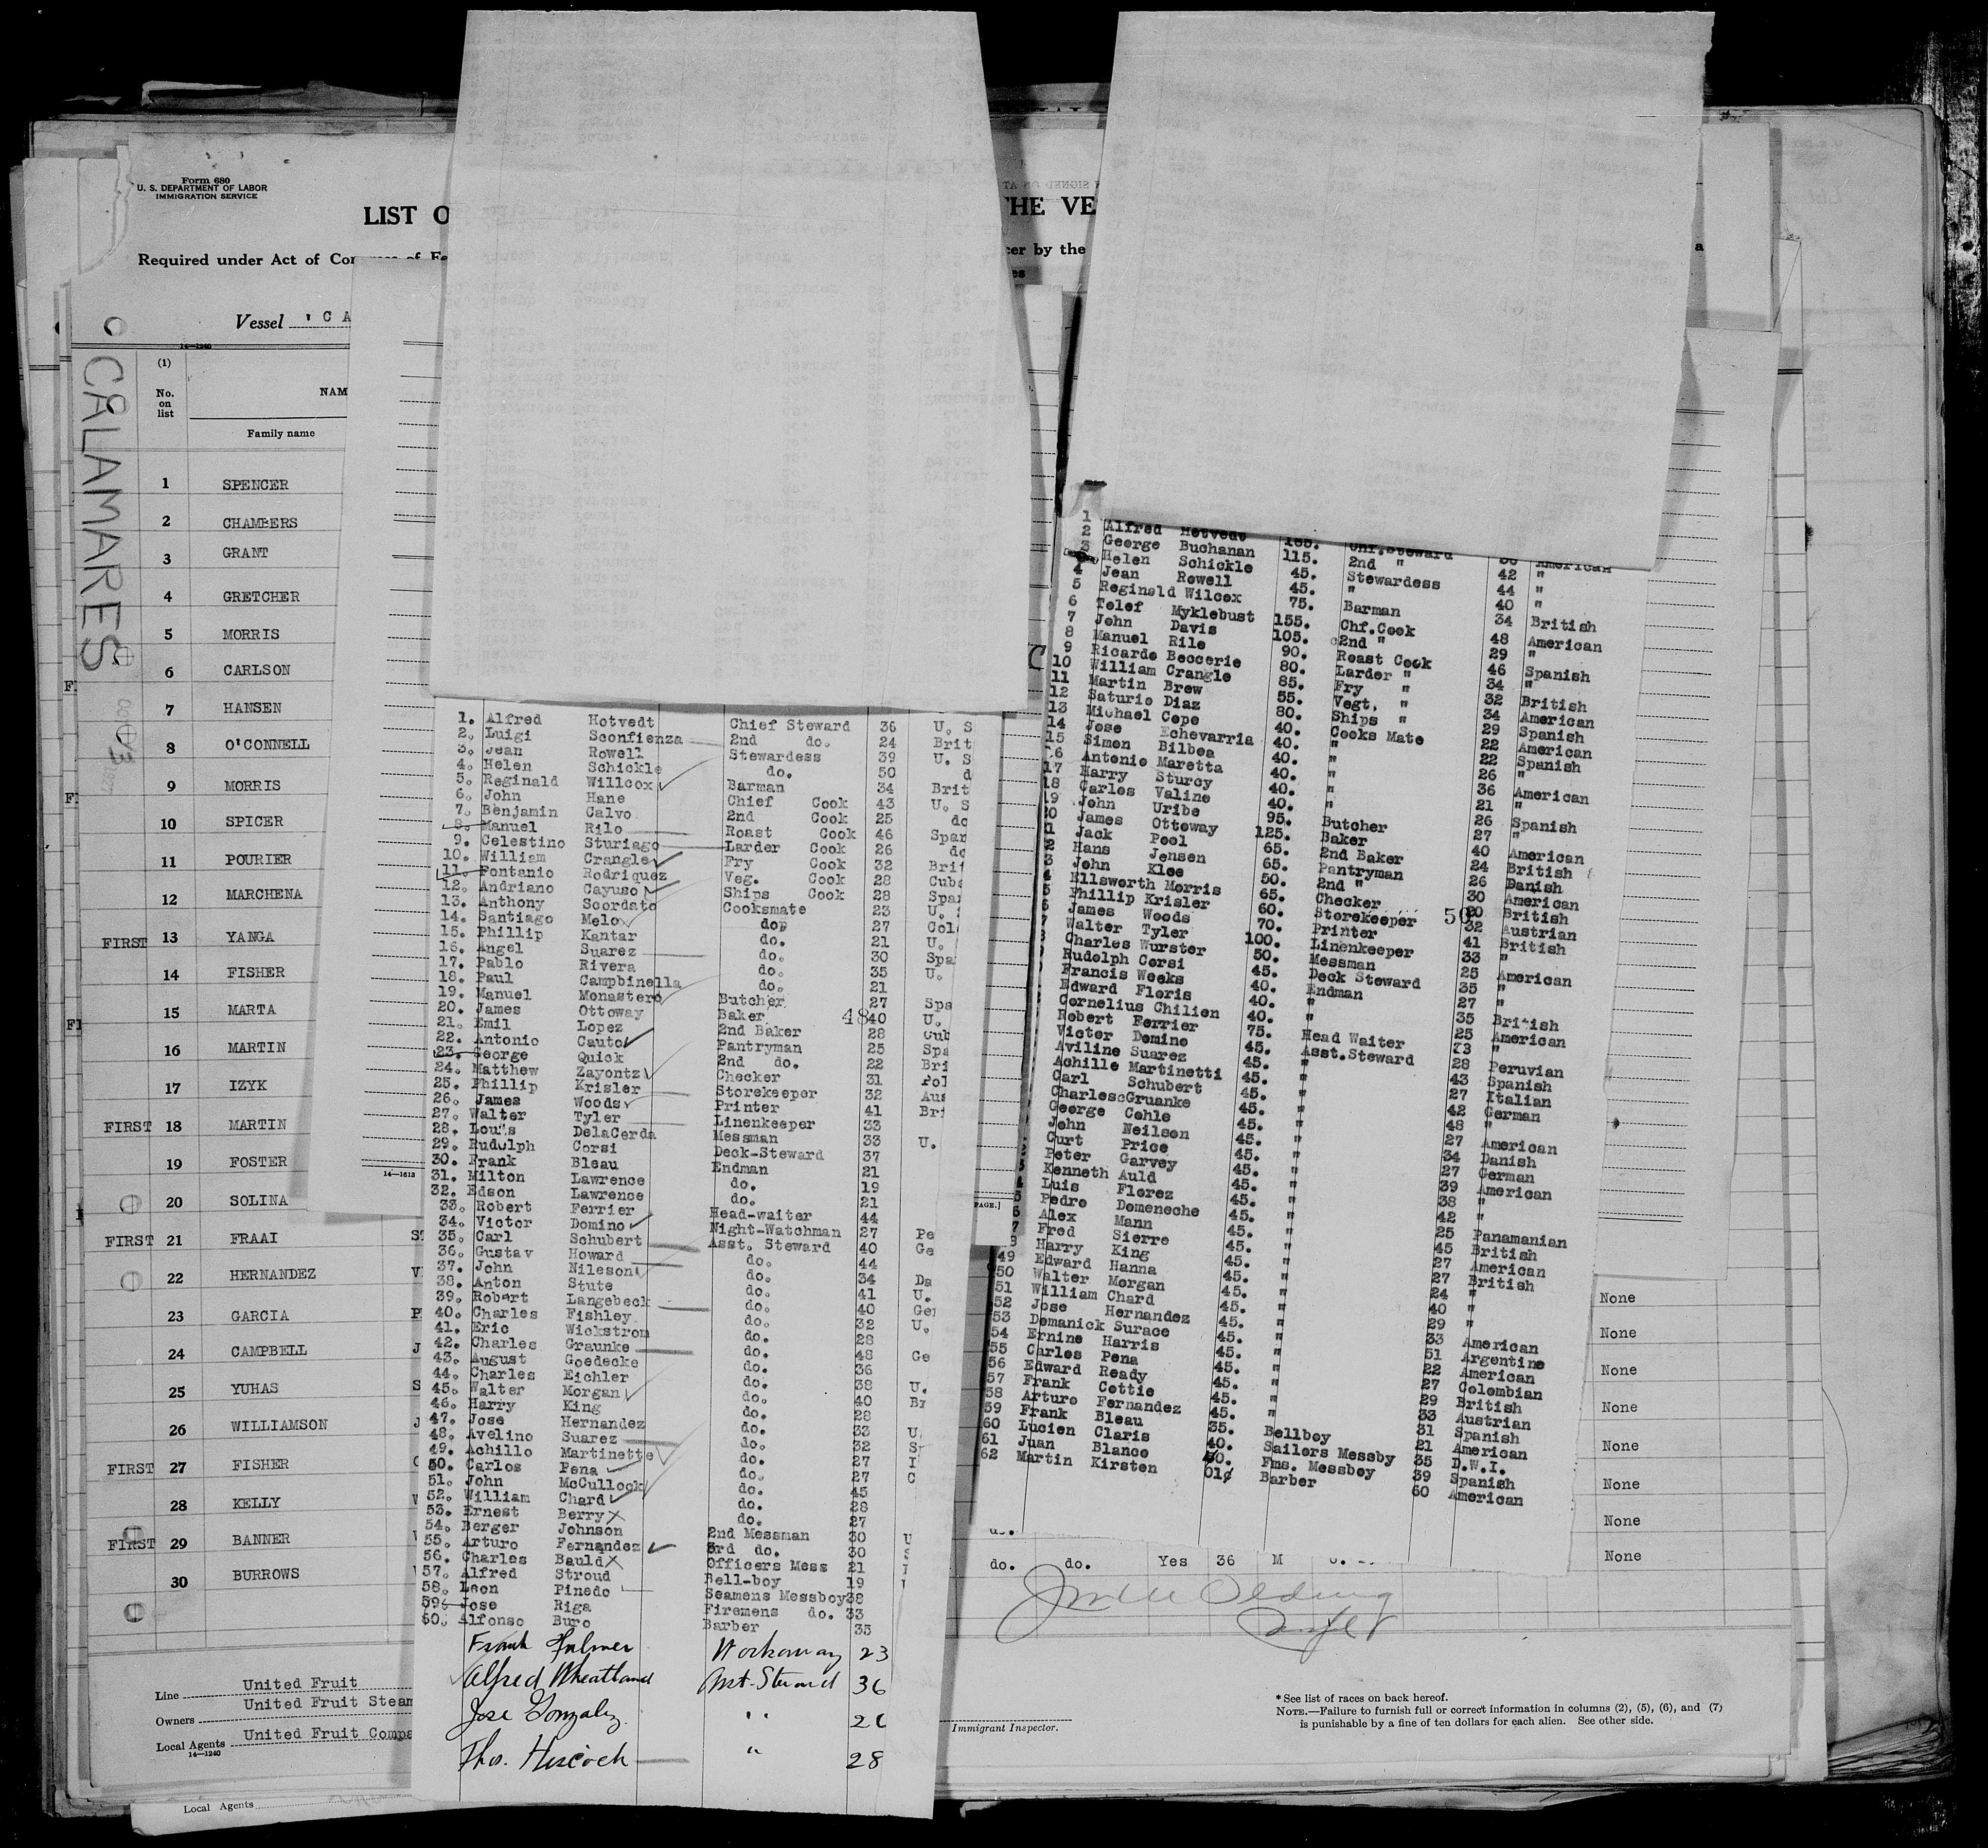 Form 680
U. S. DEPARTMENT OF LABOR
IMMIGRATION SERVICE
LIST O
THE VE
Required under Act of Congress of Fe
cer by the
es
Vessel " C A
CALAMARES
14—1240
(1)
No. on list
NAM
Family name
1 SPENCER
2 CHAMBERS
3 GRANT
4 GRETCHER
5 MORRIS
6 CARLSON
7 HANSEN
8 O'CONNELL
9 MORRIS
10 SPICER
11 POURIER
12 MARCHENA
FIRST 13 YANGA
14 FISHER
15 MARTA
16 MARTIN
17 IZYK
FIRST 18 MARTIN
19 FOSTER
20 SOLINA
FIRST 21 FRAAI
22 HERNANDEZ
23 GARCIA
24 CAMPBELL
25 YUHAS
26 WILLIAMSON
FIRST 27 FISHER
28 KELLY
FIRST 29 BANNER
30 BURROWS
Line United Fruit
Owners United Fruit Steam
Local Agents United Fruit Compa
14—1240
Local Agents
14—1613
1. Alfred Hotvedt Chief Steward 36 U. S
2. Luigi Sconfienza 2nd do. 24 Brit
3. Jean Rowell Stewardess 39 U. S
4. Helen Schickle do. 50 d
5. Reginald Willcox Barman 34 Brit
6. John Hane Chief Cook 43 U. S
7. Benjamin Calvo 2nd Cook 25 do
8. Manuel Rilo Roast Cook 46 Span
9. Celestino Sturiago Larder Cook 26 do
10. William Crangle Fry Cook 32 Brit
11. Fontanio Rodriquez Veg. Cook 28 Cuba
12. Andriano Cayuso Ships Cook 28 Spa
13. Anthony Scordato Cooksmate 23 U. S
14. Santiago Melo do. 27 Col
15. Phillip Kantar do. 21 U.
16. Angel Suarez do. 30 Spa
17. Pablo Rivera do. 35 U.
18. Paul Campbinella do. 21
19. Manuel Monastero Butcher 27 Spa
20. James Ottoway Baker 48 40 U.
21. Emil Lopez 2nd Baker 28 Cub
22. Antonio Cauto Pantryman 25 Spa
23. George Quick 2nd do. 22 Bri
24. Matthew Zayontz Checker 31 Pol
25. Phillip Krisler Storekeeper 32 Aus
26. James Woods Printer 41 Bri
27. Walter Tyler Linenkeeper 33
28. Louis DelaCerda Messman 33 U.
29. Rudolph Corsi Deck-Steward 37
30. Frank Bleau Endman 21
31. Milton Lawrence do. 19
32. Edson Lawrence do. 21
33. Robert Ferrier Head-waiter 44
34. Victor Domino Night-Watchman 27 Pe
35. Carl Schubert Asst. Steward 40 Ge
36. Gustav Howard do. 44
37. John Nileson do. 34 Da
38. Anton Stute do. 41 U.
39. Robert Langebeck do. 40 Ger
40. Charles Fishley do. 32 U.
41. Eric Wickstrom do. 28
42. Charles Graunke do. 48 Ge
43. August Goedecke do. 36
44. Charles Eichler do. 38 U.
45. Walter Morgan do. 40 Br
46. Harry King do. 28
47. Jose Hernandez do. 33 U.
48. Avelino Suarez do. 32 S
49. Achillo Martinette do. 27 I
50. Carlos Pena do. 27 C
51. John McCullock do. 45
52. William Chard do. 28
53. Ernest Berry do. 27
54. Berger Johnson 2nd Messman 30 U
55. Arturo Fernandez 3rd do. 30 S
56. Charles Bauld Officers Mess 21
57. Alfred Stroud Bell-boy 19
58. Leon Pinedo Seamens Messboy 38
59. Jose Riga Firemens do. 33
60. Alfonso Buro Barber 35
Frank Fulmer Workaway 23
Alfred Wheatland Asst-Steward 36
Jose Gonzalez " 26
Thos. Hiscock " 28
1 Alfred Hotvedt 165. Chf.Steward 36 American
2 George Buchanan 115. 2nd " 42 "
3 Helen Schickle 45. Stewardess 44 "
4 Jean Rowell 45. " 40 "
5 Reginald Wilcox 75. Barman 34 British
6 Tolef Myklebust 155. Chf.Cook 48 American
7 John Davis 105. 2nd " 29 "
8 Manuel Rilo 90. Roast Cook 46 Spanish
9 Ricardo Beccerie 80. Larder " 34 "
10 William Crangle 85. Fry " 32 British
11 Martin Brew 55. Vegt. " 34 American
12 Saturio Diaz 80. Ships " 29 Spanish
13 Michael Cope 40. Cooks Mate 22 American
14 Jose Echevarria 40. " 22 Spanish
15 Simon Bilbea 40. " 26 "
16 Antonio Maretta 40. " 36 American
17 Harry Sturcy 40. " 21 "
18 Carlos Valine 40. " 26 Spanish
19 John Uribe 95. Butcher 27 "
20 James Ottoway 125. Baker 40 American
1 Jack Pool 65. 2nd Baker 24 British
2 Hans Jensen 65. Pantryman 26 Danish
3 John Klee 50. 2nd " 30 American
4 Ellsworth Morris 65. Checker 50 20 British
5 Phillip Krisler 60. Storekeeper 32 Austrian
6 James Woods 70. Printer 41 British
7 Walter Tyler 100. Linenkeeper 33 "
Charles Wurster 50. Messman 25 American
Rudolph Corsi 45. Deck Steward 35 "
Francis Weeks 40. Endman 27 "
Edward Floris 40. " 35 British
Cornelius Chilien 40. " 25 American
Robert Ferrier 75. Head Waiter 73 "
Victor Domino 45. Asst.Steward 28 Peruvian
Aviline Suarez 45. " 43 Spanish
Achille Martinetti 45. " 27 Italian
Carl Schubert 45. " 42 German
Charles Gruanke 45. " 48 "
George Cohle 45. " 27 American
John Neilson 45. " 34 Danish
Curt Price 45. " 27 German
Peter Garvey 45. " 39 American
Kenneth Auld 45. " 38 "
Luis Florez 45. " 42 "
5 Pedro Domeneche 45. " 25 Panamanian
6 Alex Mann 45. " 45 British
7 Fred Sierre 45. " 27 American
8 Harry King 45. " 27 British
49 Edward Hanna 45. " 24 "
50 Walter Morgan 45. " 40 "
51 William Chard 45. " 29 "
52 Jose Hernandez 45. " 33 American
53 Domanick Surace 45. " 51 Argentine
54 Ernine Harris 45. " 22 American
55 Carlos Pena 45. " 27 Colombian
56 Edward Ready 45. " 29 British
57 Frank Cottie 45. " 33 Austrian
58 Arturo Fernandez 45. " 31 Spanish
59 Frank Bleau 35. Bellboy 21 American
60 Lucien Claris 40. Sailors Messby 35 D.W.I.
61 Juan Blanco 40. Fms. Messboy 39 Spanish
62 Martin Kirsten 01¢ Barber 60 American
PAGE.]
None
None
None
None
None
None
None
None
do. do. Yes 36 M
Immigrant Inspector.
* See list of races on back hereof.
NOTE.—Failure to furnish full or correct information in columns (2), (5), (6), and (7)
is punishable by a fine of ten dollars for each alien. See other side.